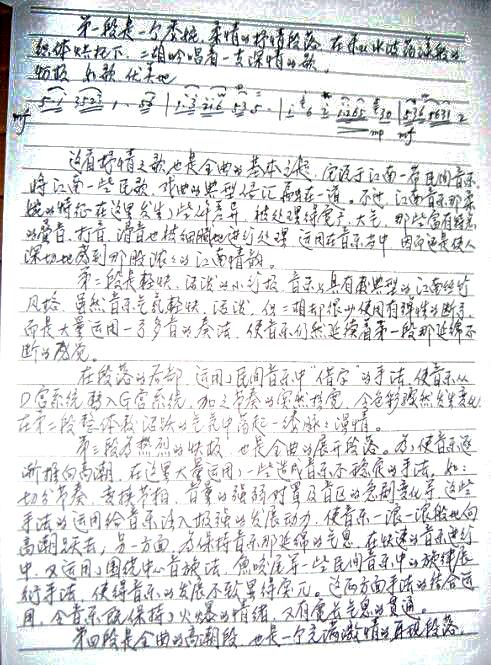 第一段是一个委婉、柔情的抒情段落，在水波荡漾般的
织体衬托下，二胡吟唱着一支深情的歌。
慢板 如歌 优美地
mf
mp mf
这首抒情之歌也是全曲的基本主题，它源于江南一带民间音乐，
将江南一些民歌、戏曲的典型任汇融在一道。不过，江南音乐那柔
婉的特征在这里发生了些许差异，被处理得宽广、大气，那些富有特色
的叠音、打音、滑音也被细腻地进行处理，运用在音乐当中，因而还是使人
深切地感到那股浓浓的江南情韵。
第二段是轻快、活泼的小行板，音乐具有典型的江南丝竹
风格，虽然音乐气氛轻快、活泼，但二胡却很少使用有弹性的断弓，
而是大量运用一弓多音的奏法，使音乐仍然延续着第一段那延绵不
断的感觉。
在段落的后部，运用了民间音乐中“借字”的手法，使音乐从
D宫系统转入G宫系统，加之节奏的突然拉宽，令色彩骤然发生变化，
在第二段整体较活跃的气氛中荡起一缕脉脉深情。
第三段为热烈的快板，也是全曲的展开段落。为了使音乐逐
渐推向高潮，在这里大量运用了一些造成音乐不稳定的手法，如：
切分节奏、变换节拍、音量的强弱对置及音区的急剧变化等，这些
手法的运用给音乐注入极强的发展动力，使音乐一浪一浪般地向
高潮跃去，另一方面，为保持音乐那延绵的气息，在快速的音乐进行
中，又运用了围绕中心音旋法，鱼咬尾等一些民间音乐中的旋律展
衍手法，使得音乐的发展不致显得零冗。这两方面手法的结合运
用，令音乐既保持了火爆的情绪，又有宽长气息的贯通。
第四段是全曲的高潮段，也是一个充满激情的再现段落。